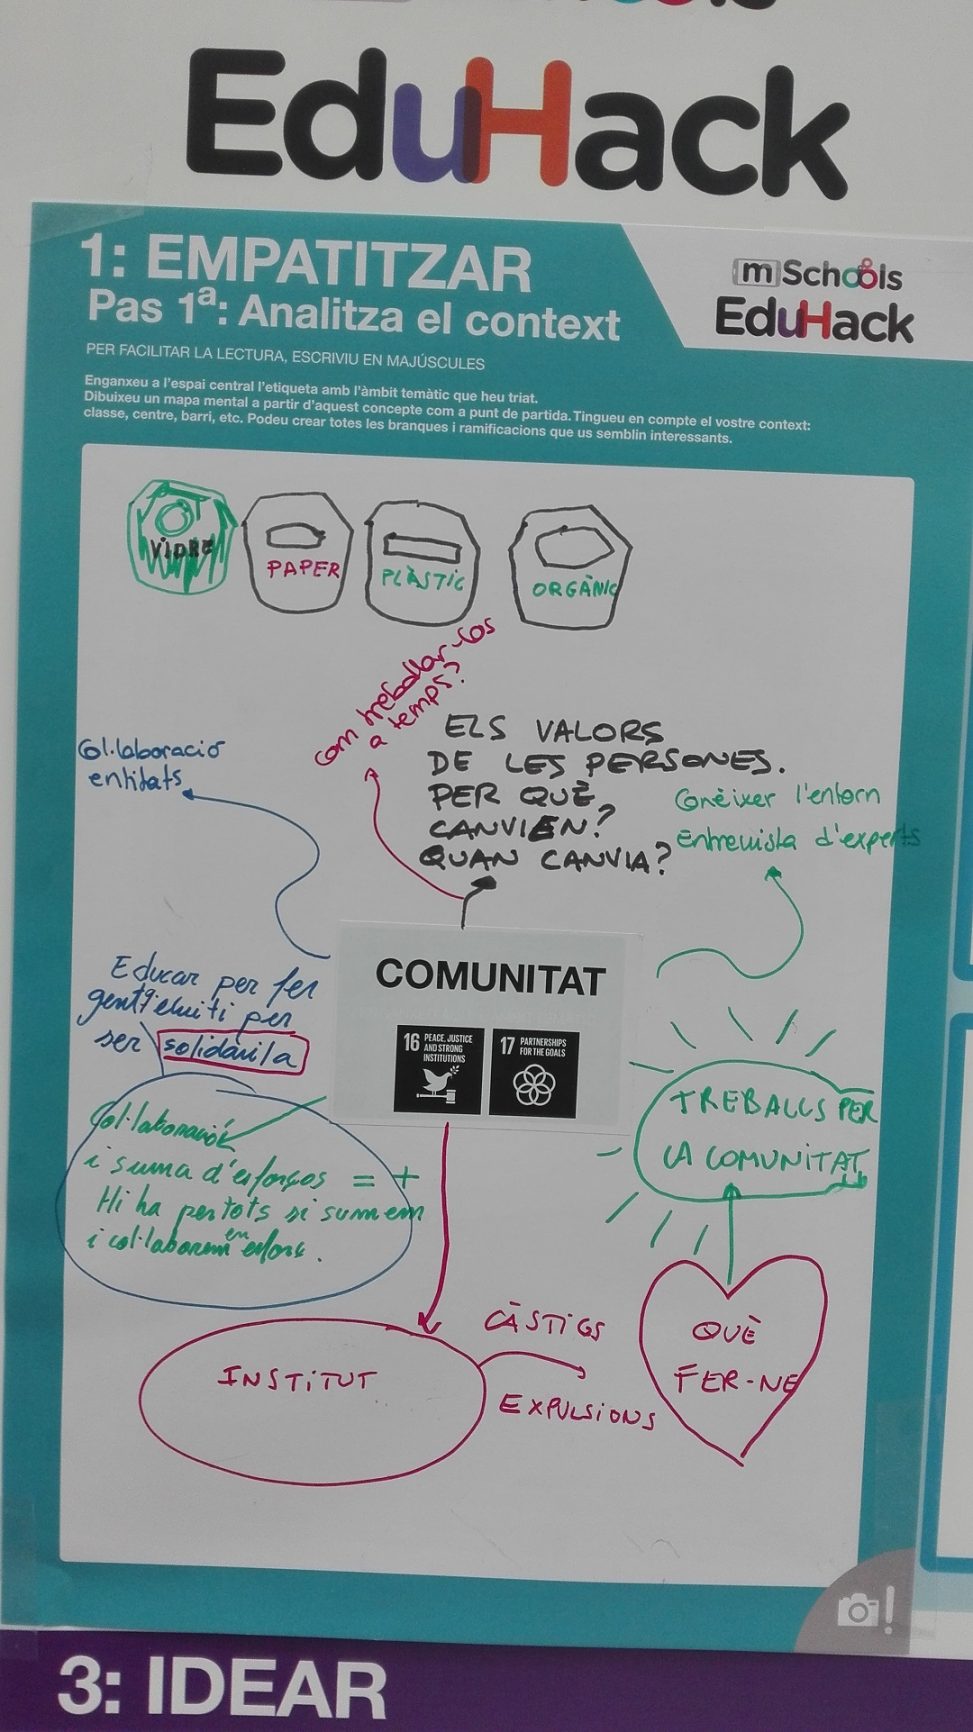 EduHack
1: EMPATITZAR
Pas 1ª: Analitza el context
mSchools
EduHack
PER FACILITAR LA LECTURA, ESCRIVIU EN MAJÚSCULES
Enganxeu a l'espai central l'etiqueta amb l'àmbit temàtic que heu triat.
Dibuixeu un mapa mental a partir d'aquest concepte com a punt de partida. Tingueu en compte el vostre context:
classe, centre, barri, etc. Podeu crear totes les branques i ramificacions que us semblin interessants.
VIDRE
PAPER
PLÀSTIC
ORGÀNIC
Com treballar-los
a temps?
ELS VALORS
DE LES PERSONES.
PER QUÈ
CANVIEN?
QUAN CANVIA?
Col·laboració
entitats
Conèixer l'entorn
Entrevista d'experts
COMUNITAT
16 PEACE, JUSTICE
AND STRONG
INSTITUTIONS
17 PARTNERSHIPS
FOR THE GOALS
Educar per fer
per
ser solidària
Col·laboració
i suma d'esforços = +
Hi ha per tots si sumem
i col·laborem en esforç.
TREBALLS PER
LA COMUNITAT
INSTITUT
CÀSTIGS
EXPULSIONS
QUÈ
FER-NE
3: IDEAR